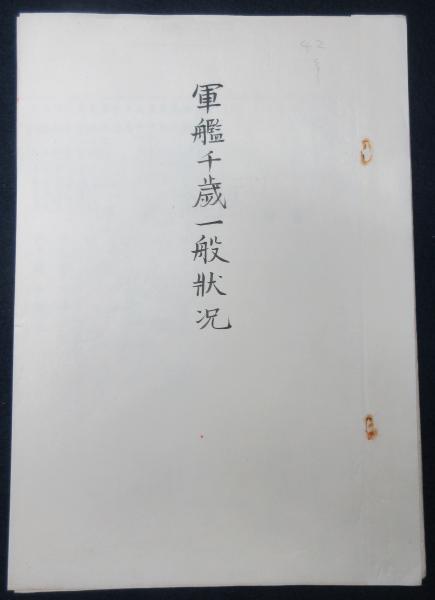 軍艦千歳一般狀况
42